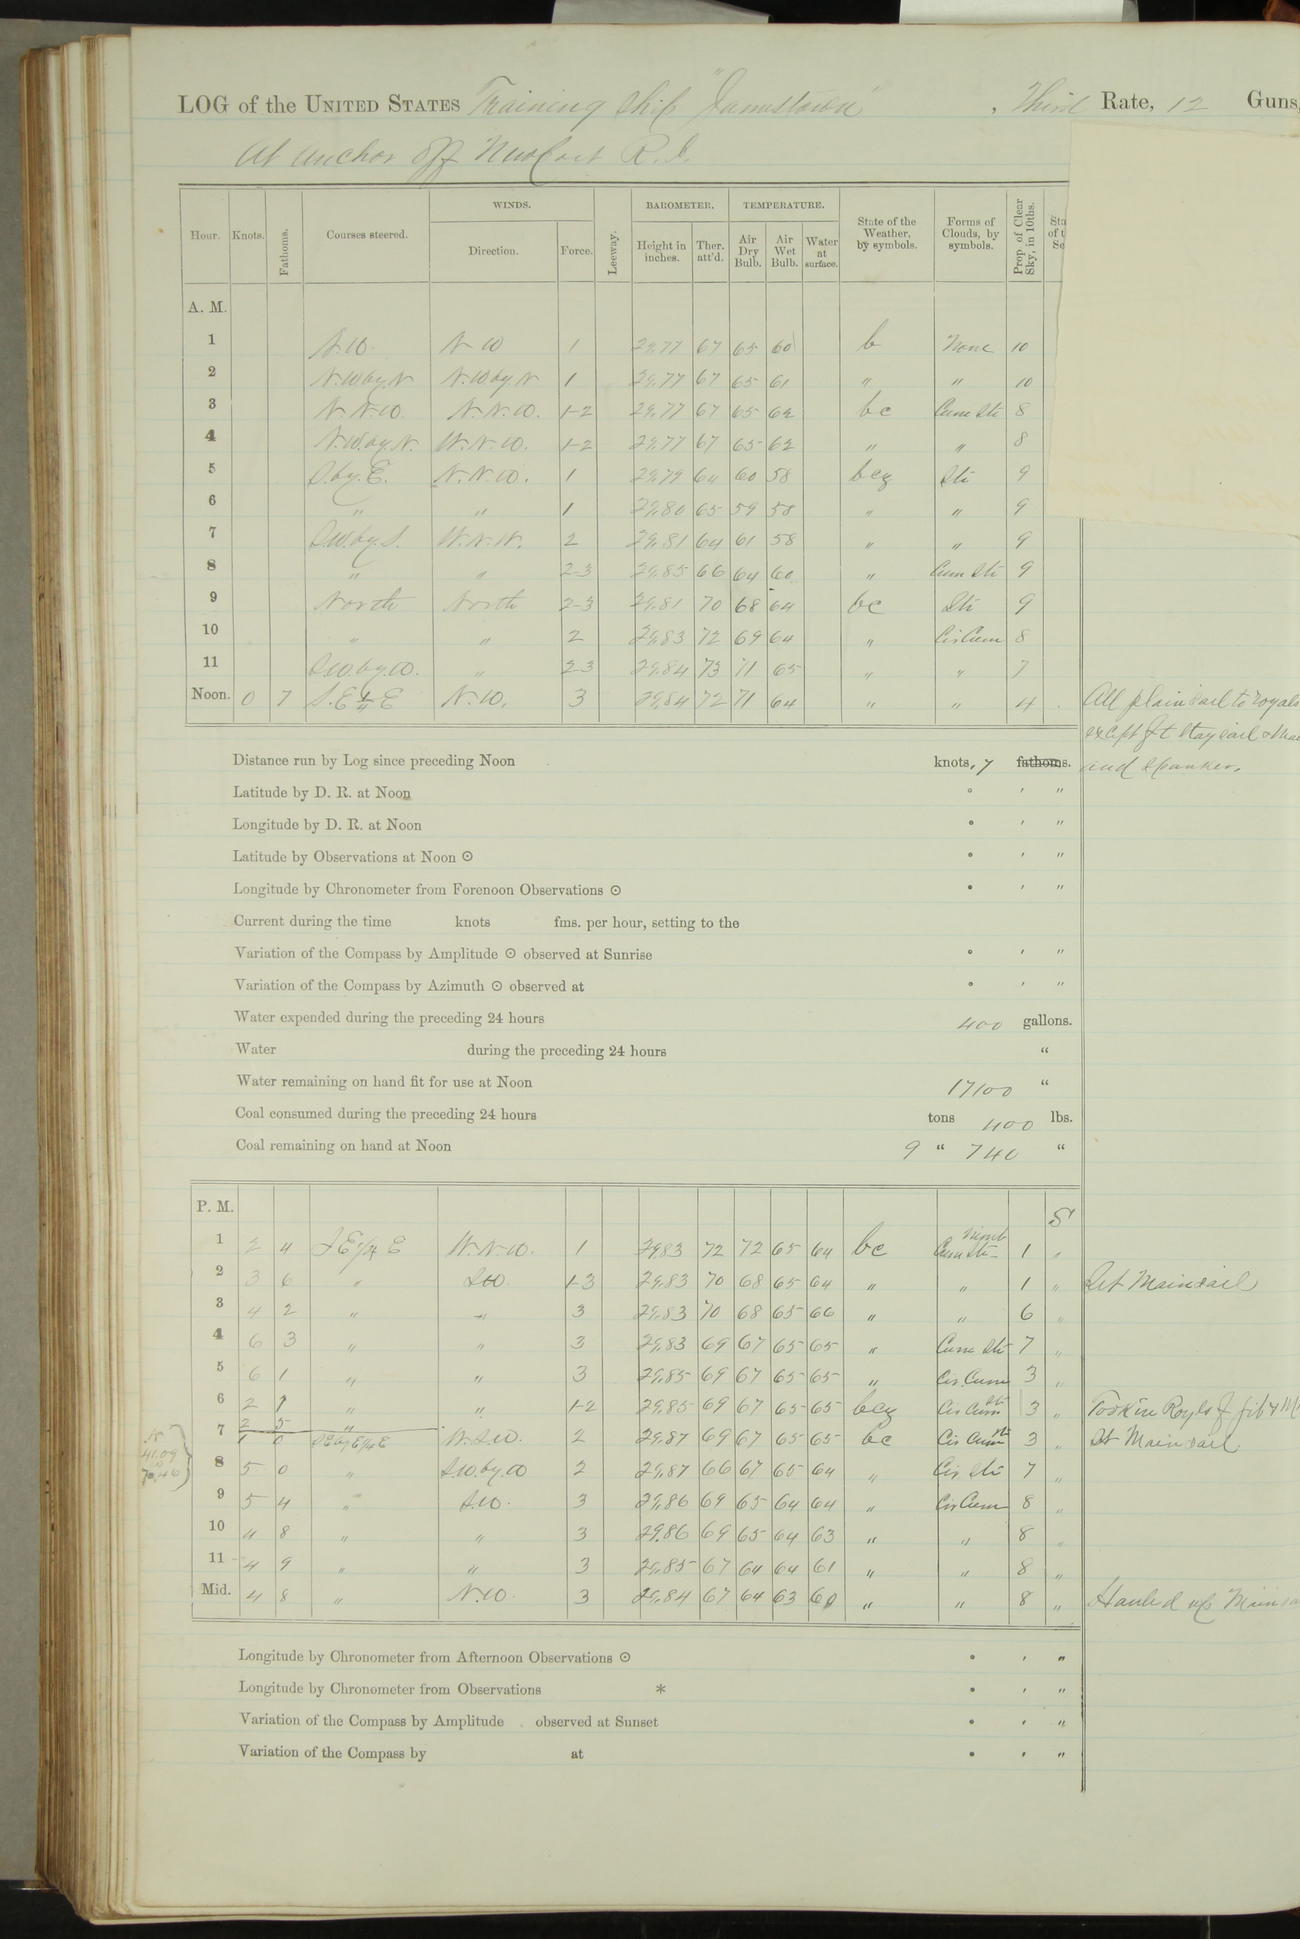 LOG of the UNITED STATES Training Ship "Jamestown", Third Rate, 12 Guns,
At anchor off Newport R.I.
Hour. Knots. Fathoms. Courses steered. WINDS. Direction. Force. Leeway. BAROMETER. Height in inches. Ther. att'd. TEMPERATURE. Air Dry Bulb. Air Wet Bulb. Water at surface. State of the Weather, by symbols. Forms of Clouds, by symbols. Prop. of Clear Sky, in 10ths.
A. M.
1 N.W. N W 1 29.77 67 65 60 b None 10
2 N.W by N N.W. by N 1 29.77 67 65 61 " " 10
3 N.N.W. N.N.W. 1-2 29.77 67 65 62 bc Cum Sti 8
4 N.W. by N. W.N.W. 1-2 29.77 67 65 62 " " 8
5 S. by E. N.N.W. 1 29.79 64 60 58 bcz Sti 9
6 " " 1 29.80 65 59 58 " " 9
7 S.W. by S. W.N.W. 2 29.81 64 61 58 " " 9
8 " " 2-3 29.85 66 64 60 " Cum Sti 9
9 North North 2-3 29.81 70 68 64 bc Sti 9
10 " " 2 29.83 72 69 64 " Cir Cum 8
11 S.W. by W. " 2-3 29.84 73 71 65 " " 7
Noon. 0 7 S.E ¼ E N.W. 3 29.84 72 71 64 " " 4 All plain sail to royals
except f t staysail &
Distance run by Log since preceding Noon knots, 7 fathoms. and spanker.
Latitude by D. R. at Noon ° ′ ″
Longitude by D. R. at Noon ° ′ ″
Latitude by Observations at Noon ☉ ° ′ ″
Longitude by Chronometer from Forenoon Observations ☉ ° ′ ″
Current during the time knots fms. per hour, setting to the
Variation of the Compass by Amplitude ☉ observed at Sunrise ° ′ ″
Variation of the Compass by Azimuth ☉ observed at ° ′ ″
Water expended during the preceding 24 hours 400 gallons.
Water during the preceding 24 hours "
Water remaining on hand fit for use at Noon 17100 "
Coal consumed during the preceding 24 hours tons 400 lbs.
Coal remaining on hand at Noon 9 " 740 "
P. M.
S
1 2 4 S E ¼ E W.N.W. 1 29.83 72 72 65 64 bc Nimb Cum Sti 1 "
2 3 6 " SW 1-3 29.83 70 68 65 64 " " 1 " Set Mainsail
3 4 2 " " 3 29.83 70 68 65 66 " " 6 "
4 6 3 " " 3 29.83 69 67 65 65 " Cum Sti 7 "
5 6 1 " " 3 29.85 69 67 65 65 " Cir. Cum 3 "
6 2 9 " " 1-2 29.85 69 67 65 65 bcz Cir Cum Sti 3 " Took in Royals f. jib &
7 2 5 "
1 0 SE by E ¼ E W.S.W. 2 29.87 69 67 65 65 bc Cir Cum Sti 3 " Set Mainsail
N
41.09
W
70.46
8 5 0 " S.W. by W 2 29.87 66 67 65 64 " Cir Sti 7 "
9 5 4 " S.W. 3 29.86 69 65 64 64 " Cir Cum 8 "
10 4 8 " " 3 29.86 69 65 64 63 " " 8 "
11 4 9 " " 3 29.85 67 64 64 61 " " 8 "
Mid. 4 8 " N.W. 3 29.84 67 64 63 60 " " 8 " Hauled up Mainsa
Longitude by Chronometer from Afternoon Observations ☉ ° ′ ″
Longitude by Chronometer from Observations * ° ′ ″
Variation of the Compass by Amplitude observed at Sunset ° ′ ″
Variation of the Compass by at ° ′ ″